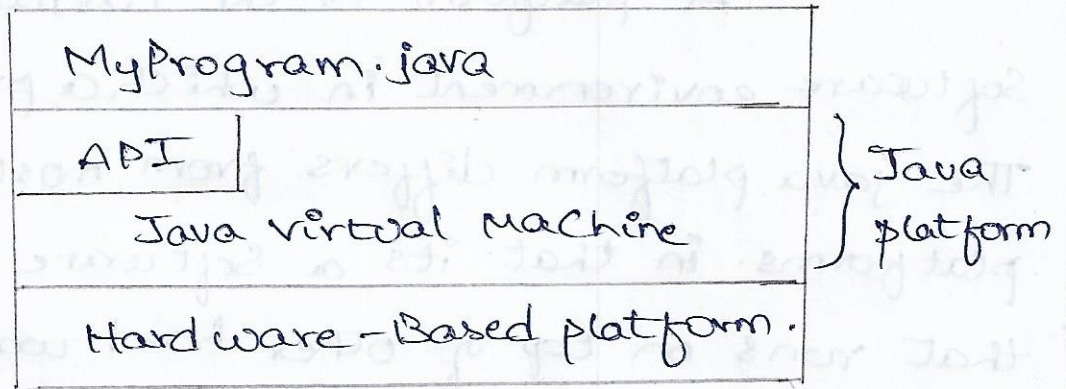 MyProgram.java
API
Java virtual Machine
Java
platform
Hardware-Based platform.